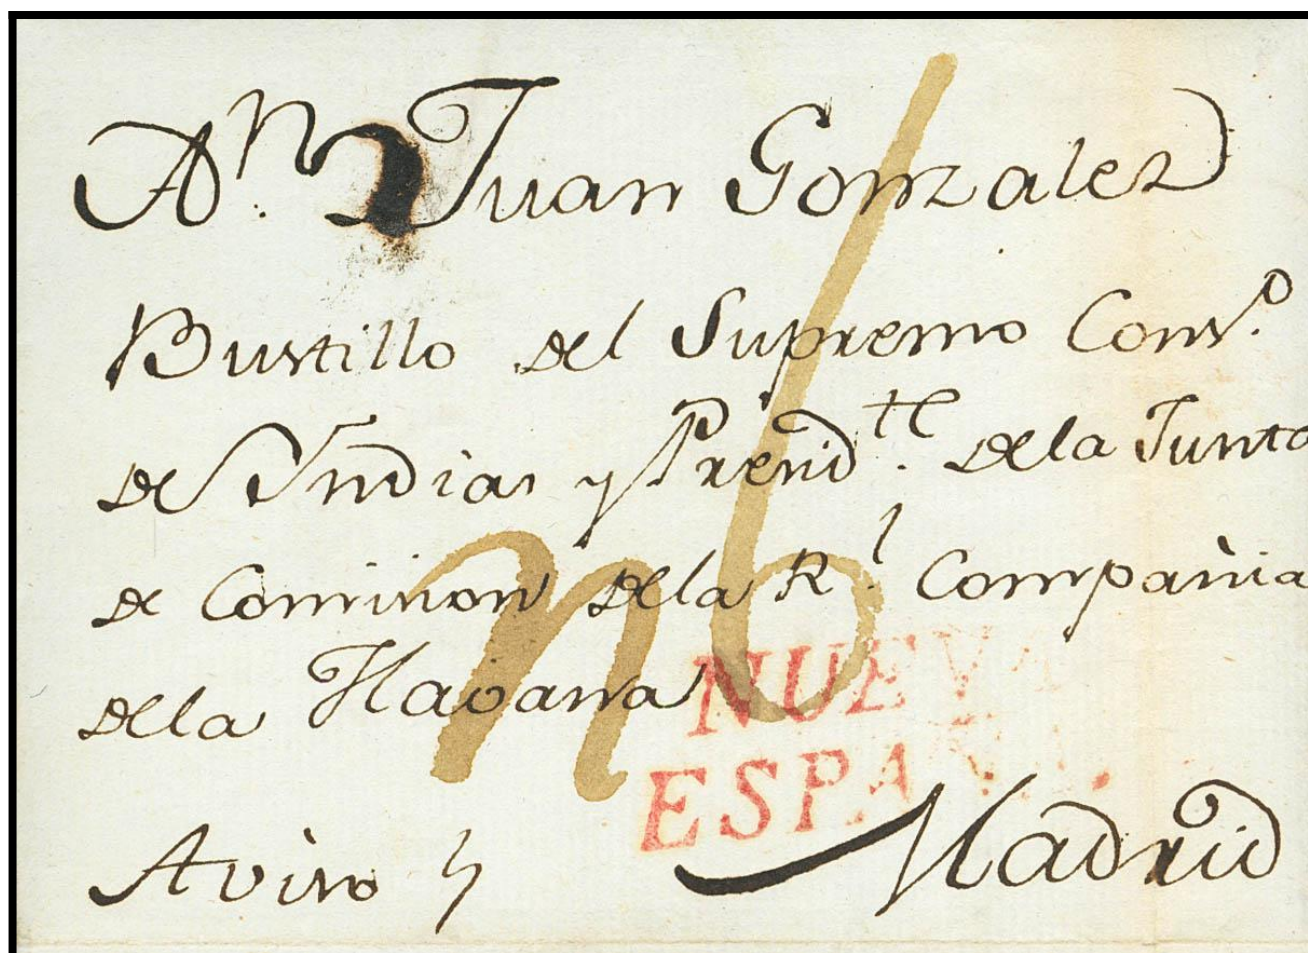 A Dn Juan Gonzalez
Bustillo del Supremo Cons.o
de Yndias y Presid.te dela Junta
de Comision dela R.l Compañia
dela Havana
n6
NUEVA
ESPAÑA.
Aviso
Madrid